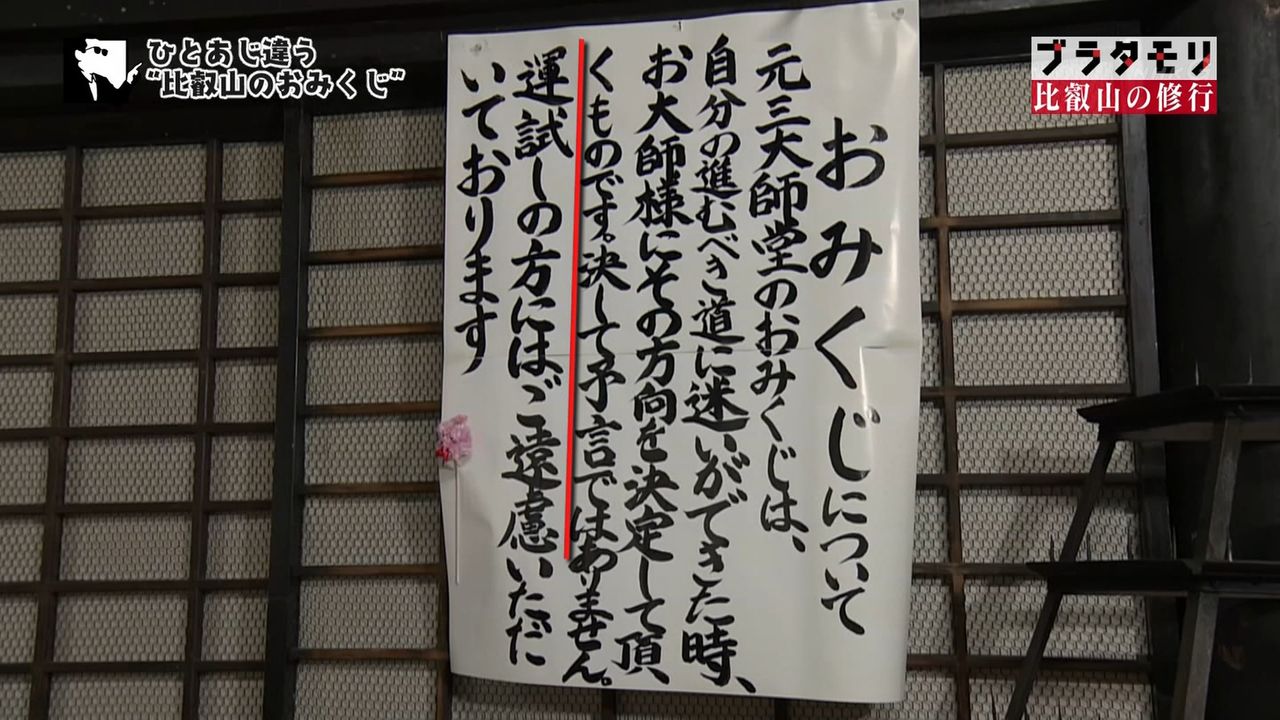 ひとあじ違う
“比叡山のおみくじ”
ブラタモリ
比叡山の修行
おみくじについて
元三大師堂のおみくじは、
自分の進むべき道に迷いができた時、
お大師様にその方向を決定して頂
くものです。決して予言ではありません。
運試しの方にはご遠慮いただ
いております